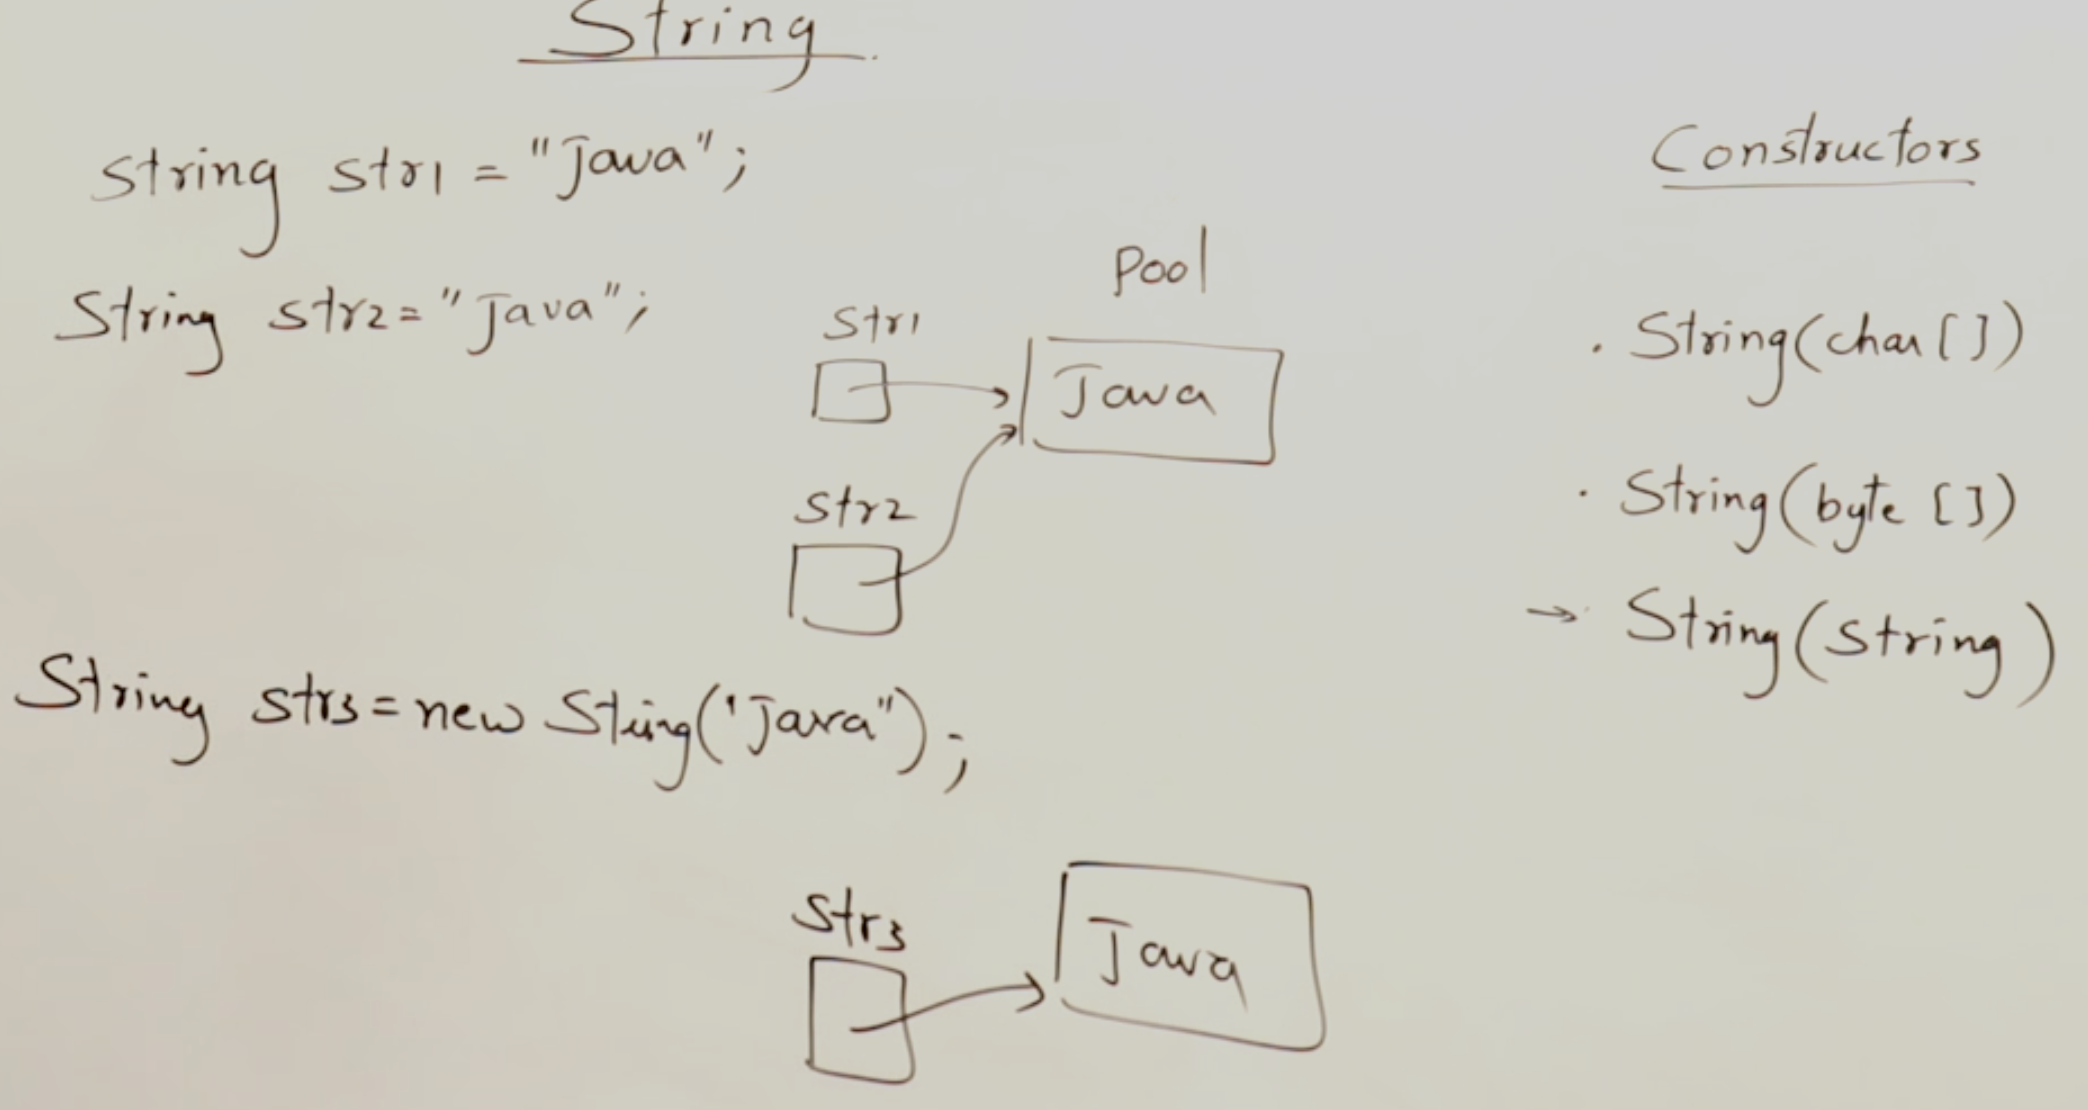 String
String str1 = "Java";
String str2="Java";
Pool
Str1
Java
Str2
String str3=new String('Java");
Str3
Java
Constructors
. String(char [])
. String(byte [])
→ String(String)